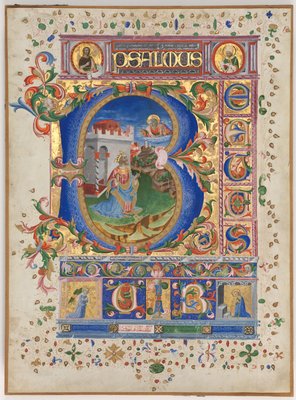 PSALMUS
BEATUS
UIR